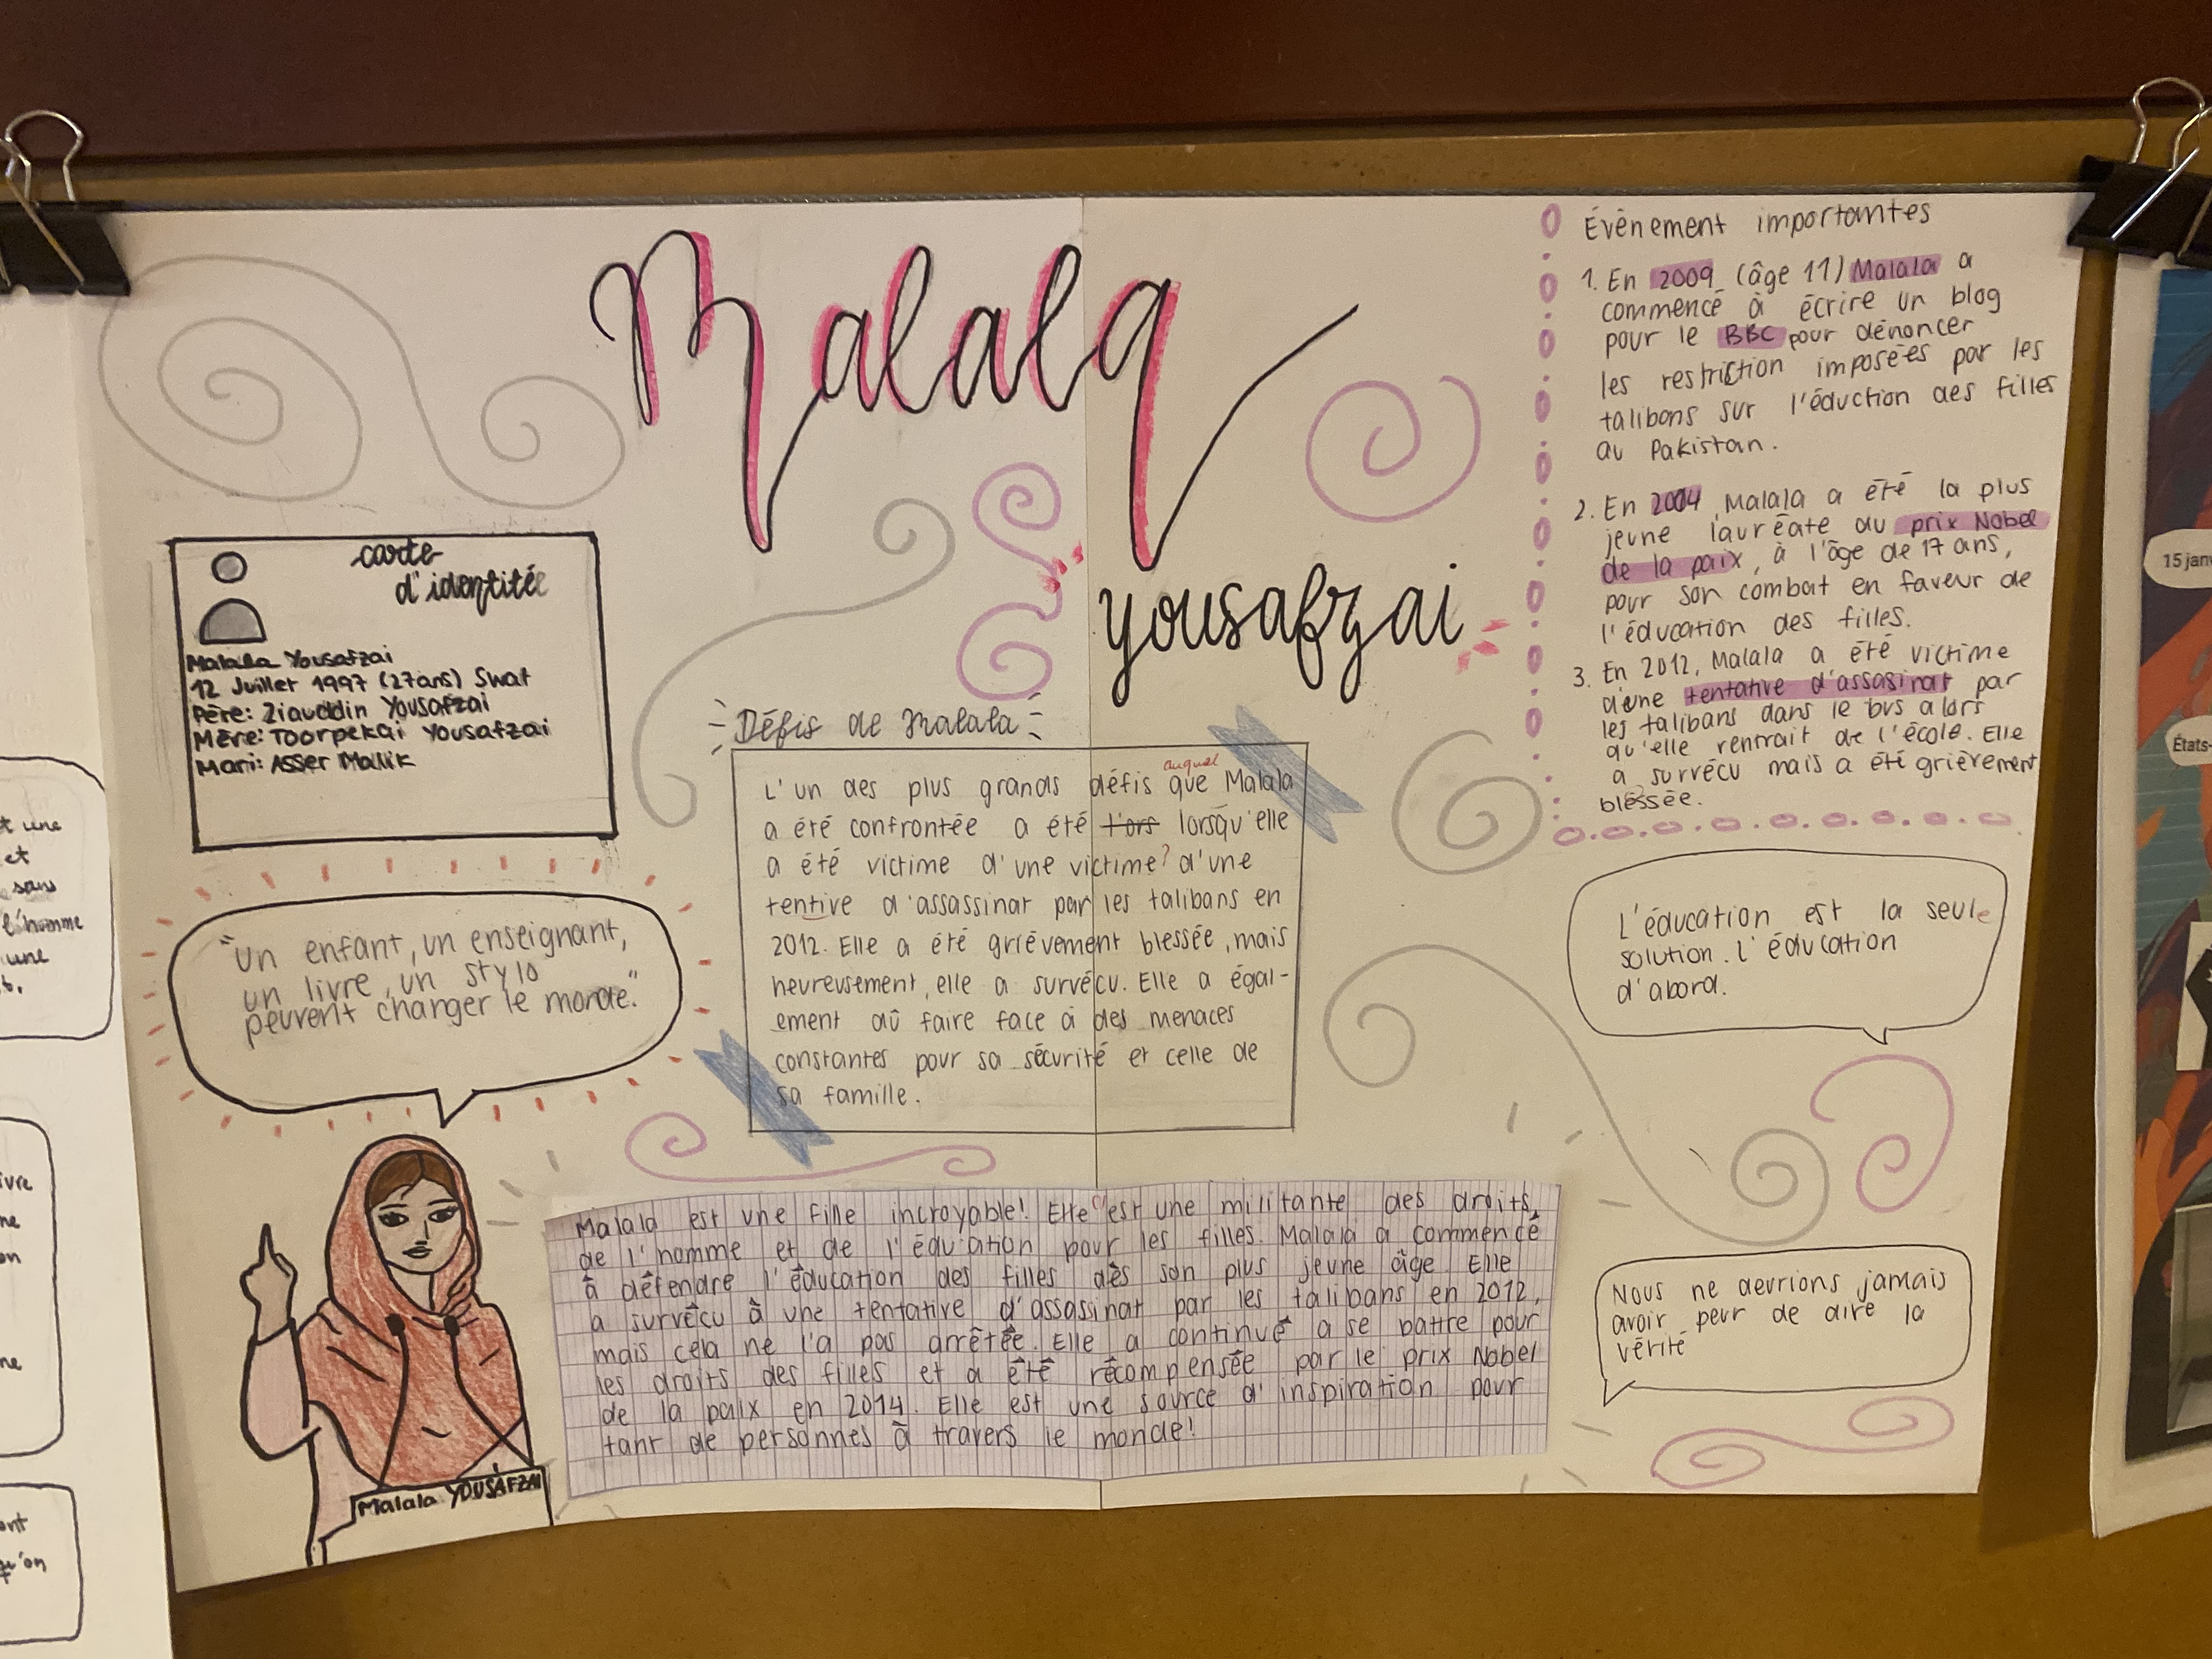 Malala
yousafzai
carte
d'identité
Malala Yousafzai
12 Juillet 1997 (27ans) Swat
Père: Ziauddin Yousafzai
Mère: Toorpekai Yousafzai
Mari: Asser Malik
"Un enfant, un enseignant,
un livre, un stylo
peuvent changer le monde."
Malala YOUSAFZAI
Défis de Malala
auquel
L'un des plus grands défis que Malala
a été confrontée a été l'ors lorsqu'elle
a été victime d'une victime? d'une
tentive d'assassinat par les talibans en
2012. Elle a été grièvement blessée, mais
heureusement, elle a survécu. Elle a égal-
ement dû faire face à des menaces
constantes pour sa sécurité et celle de
sa famille.
Malala est une fille incroyable! Elle c'est une militante des droits
de l'homme et de l'éducation pour les filles. Malala a commencé
à défendre l'éducation des filles dès son plus jeune âge. Elle
a survécu à une tentative d'assassinat par les talibans en 2012,
mais cela ne l'a pas arrêtée. Elle a continué a se battre pour
les droits des filles et a été récompensée par le prix Nobel
de la paix en 2014. Elle est une source d'inspiration pour
tant de personnes à travers le monde!
Évènement importantes
1. En 2009 (âge 11) Malala a
commencé à écrire un blog
pour le BBC pour dénoncer
les restriction imposées par les
talibans sur l'éduction des filles
au Pakistan.
2. En 2004, Malala a été la plus
jeune lauréate du prix Nobel
de la paix, à l'âge de 17 ans,
pour son combat en faveur de
l'éducation des filles.
3. En 2012, Malala a été victime
d'une tentative d'assasinat par
les talibans dans le bus alors
qu'elle rentrait de l'école. Elle
a survécu mais a été grièrement
blessée.
L'éducation est la seule
solution. l'éducation
d'abord.
Nous ne devrions jamais
avoir peur de dire la
vérité
t une
et
sans
l'homme
une
ivre
ne
on
ne
ont
qu'on
15 jan
États-